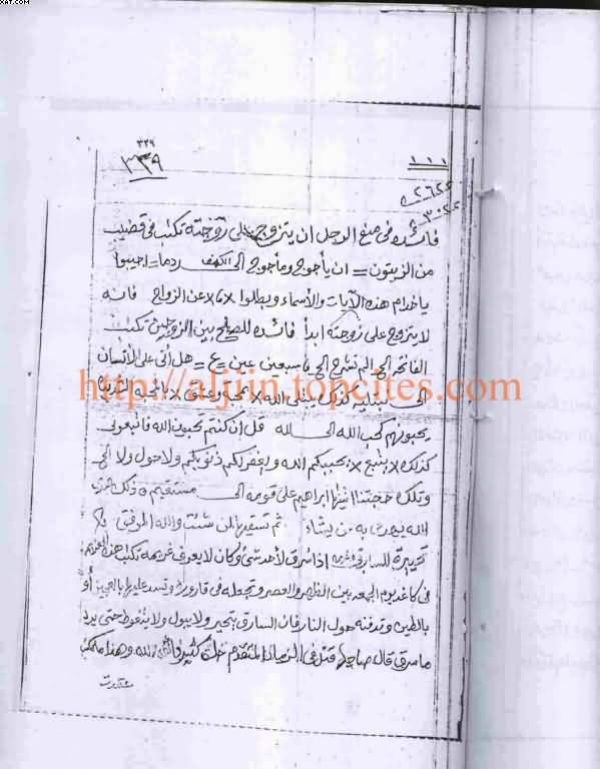 XAT.COM
٣٣٩
٣٣٩
١١١
فائدة فى منع الرجل ان يتزوج على زوجته تكتب فى قضيب
من الزيتون = ان يأجوج ومأجوج الى الكهف ردما = اجيبوا
ياخدام هذه الآيات والأسماء وبطلوا عن الزواج فانه
لا يتزوج على زوجته ابدأ فائده للصلح بين الزوجين تكتب
الفاتحه الى الم نشرح الى عين = هل اتى على الأنسان
http://aljin.topcites.com
كذلك الله
يحبونهم كحب الله الى لله قل ان كنتم تحبون الله فاتبعونى
كذلك يتبع يحببكم الله ويغفر لكم ذنوبكم ولا حول ولا الى
وتلك حجتنا اتيناها ابراهيم على قومه الى مستقيم ذلك هدى
الله يهدى به من يشاء ثم تسقيها لمن شئت والله الموفق
للسارق اذا سرق لأحد شئ وكان لا يعرف غريمه تكتب هذه
فى كاغد يوم الجمعه بين الظهر والعصر وتجعله فى قارورة وتسد عليها بالعجين أو
بالطين وتدفنه حول النار فان السارق يتحير ولا يبول ولا يتغوط حتى يرد
ما سرق قال صاحبها قتل فى الزمان المتقدم خلق كثير الله وهذا ما تكتب